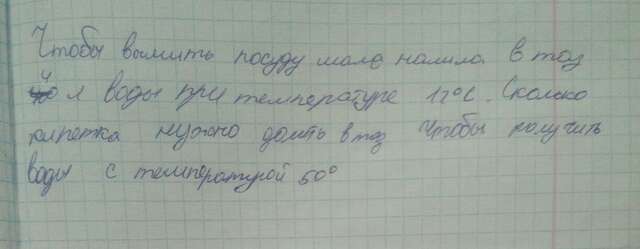 Чтобы вымыть посуду мама налила в таз
4 л воды при температуре 12°C. Сколко
кипетка нужно долить в таз Чтобы получить
воды с температурой 50°